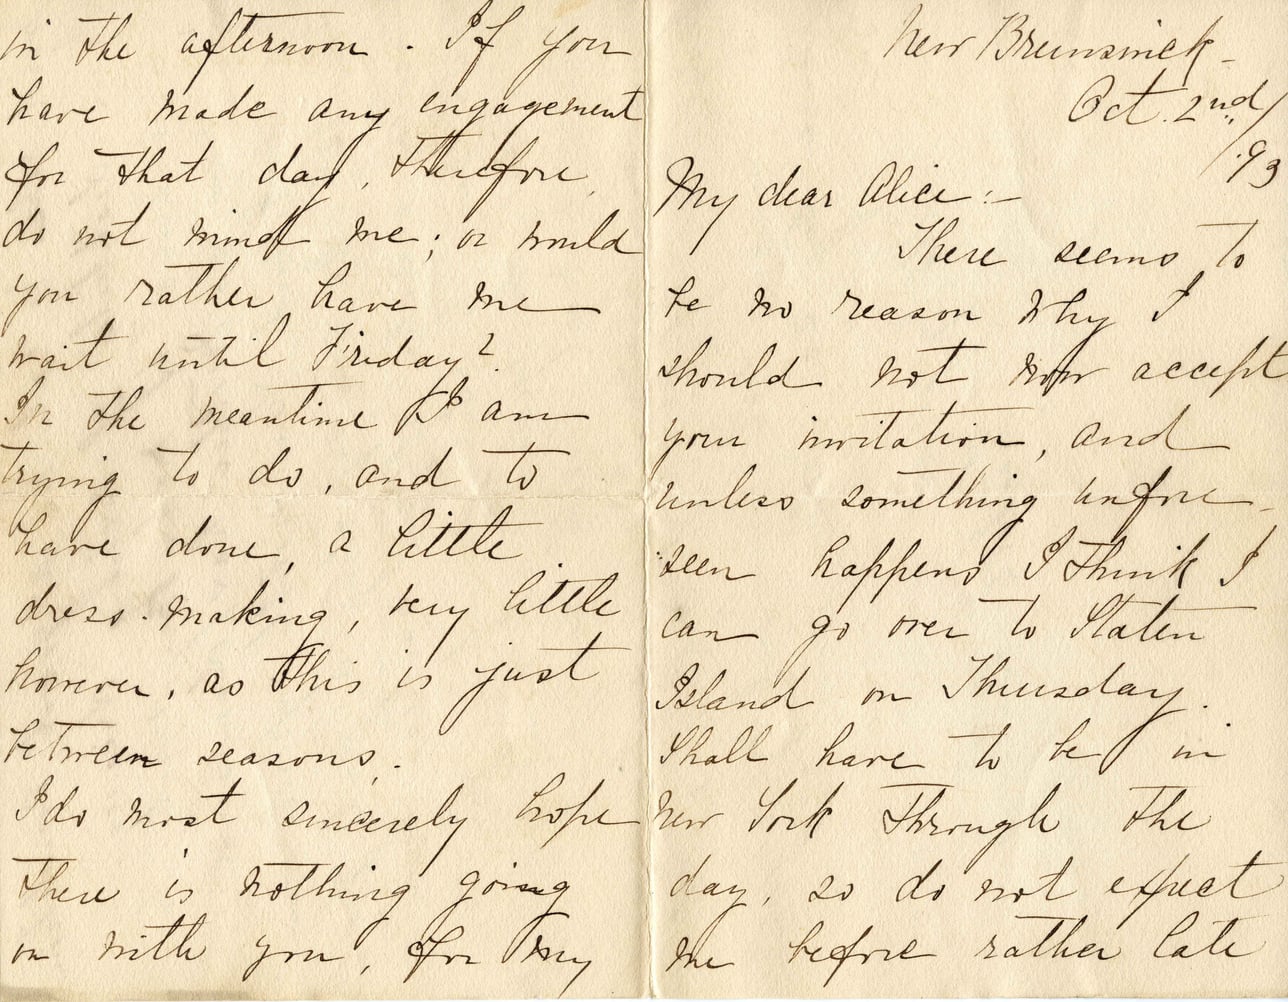 New Brunswick -
Oct. 2nd/
'93
My dear Alice:-
There seems to
be no reason why I
should not now accept
your invitation, and
unless something unfore-
seen happens I think I
can go over to Staten
Island on Thursday.
Shall have to be in
New York through the
day, so do not expect
me before rather late
in the afternoon. If you
have made any engagement
for that day, therefore,
do not mind me; or would
you rather have me
wait until Friday?
In the meantime I am
trying to do, and to
have done, a little
dress-making, very little
however, as this is just
between seasons.
I do most sincerely hope
there is nothing going
on with you, for my